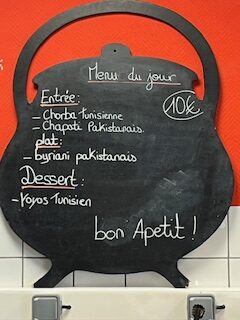 Menu du jour
Entrée :
- Chorba Tunisienne
10€
- Chapati Pakistanais
plat :
- byriani pakistanais
Dessert :
- Yoyos Tunisien
bon Apetit !